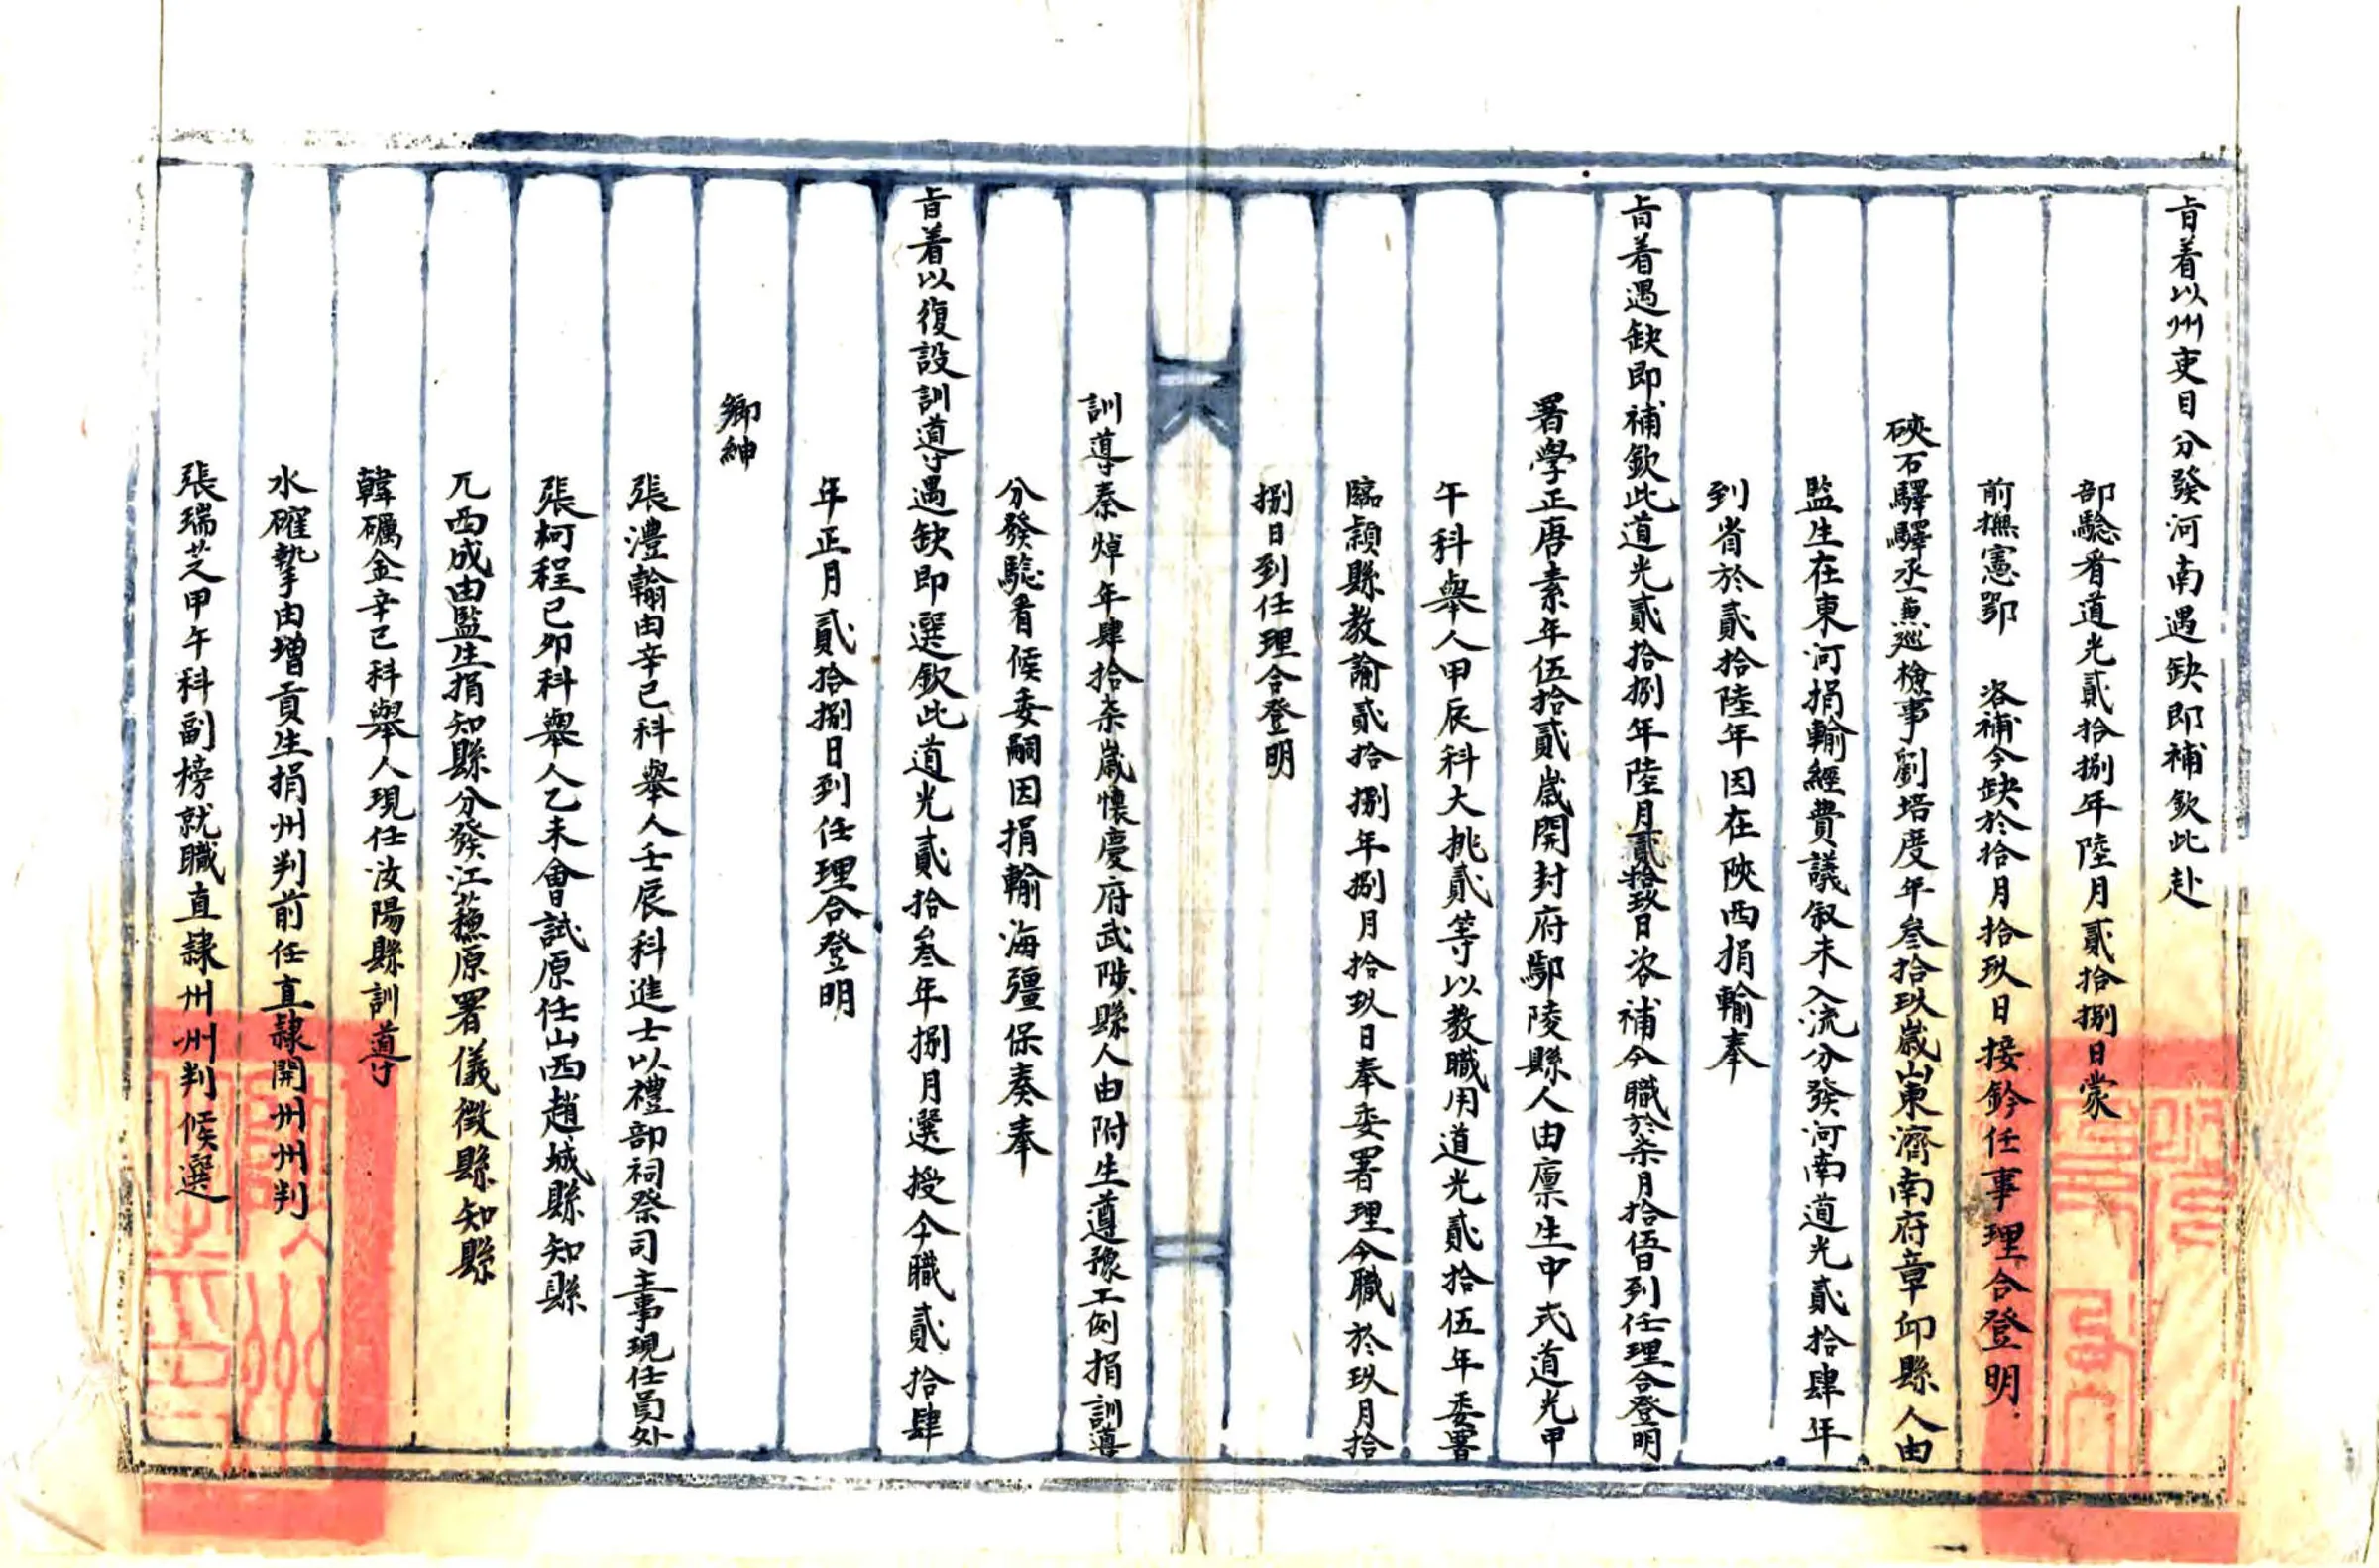 旨着以州吏目分發河南遇缺即補欽此赴
部驗看道光貳拾捌年陸月貳拾捌日蒙
前撫憲鄂 咨補今缺於拾月拾玖日接鈐任事理合登明
硤石驛驛丞兼巡檢事劉培度年叁拾玖歲山東濟南府章邱縣人由
監生在東河捐輸經費議叙未入流分發河南道光貳拾肆年
到省於貳拾陸年因在陝西捐輸奉
旨着遇缺即補欽此道光貳拾捌年陸月貳拾玖日咨補今職於柒月拾伍日到任理合登明
署學正唐素年伍拾貳歲開封府鄢陵縣人由廪生中式道光甲
午科舉人甲辰科大挑貳等以教職用道光貳拾伍年委署
臨潁縣教諭貳拾捌年捌月拾玖日奉委署理今職於玖月拾
捌日到任理合登明
訓導秦焯年肆拾柒歲懷慶府武陟縣人由附生遵豫工例捐訓導
分發驗看候委嗣因捐輸海疆保奏奉
旨着以復設訓導遇缺即選欽此道光貳拾叁年捌月選授今職貳拾肆
年正月貳拾捌日到任理合登明
鄉紳
張澧翰由辛巳科舉人壬辰科進士以禮部祠祭司主事現任員外
張柯程己卯科舉人乙未會試原任山西趙城縣知縣
兀西成由監生捐知縣分發江蘇原署儀徵縣知縣
韓礪金辛巳科舉人現任汝陽縣訓導
水確摯由增貢生捐州判前任直隸開州州判
張瑞芝甲午科副榜就職直隸州州判候選